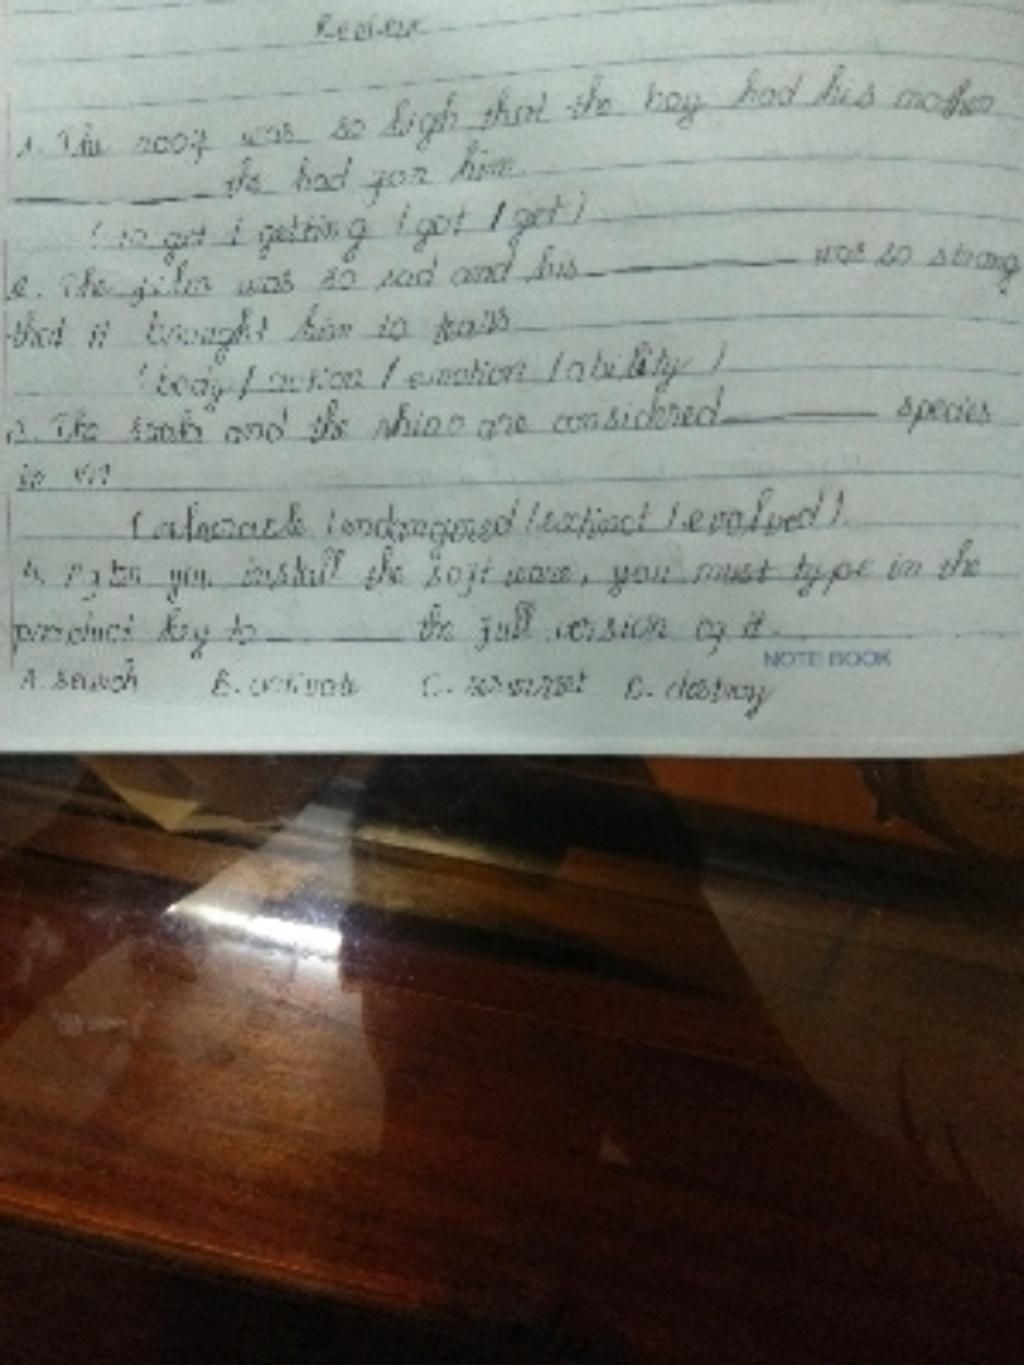 Review
1. The roof was so high that the boy had his mother
________ the had for him
( to get / getting / got / get )
2. The film was so sad and his ________ was so strong
that it brought him to
( body / action / emotion / ability )
3. The and the rhino are considered ________ species
in
( / endangered / extinct / evolved ).
4. After you install the soft ware, you must type in the
product key to ________ the full version of it.
NOTE BOOK
A. search B. activate C. D. destroy